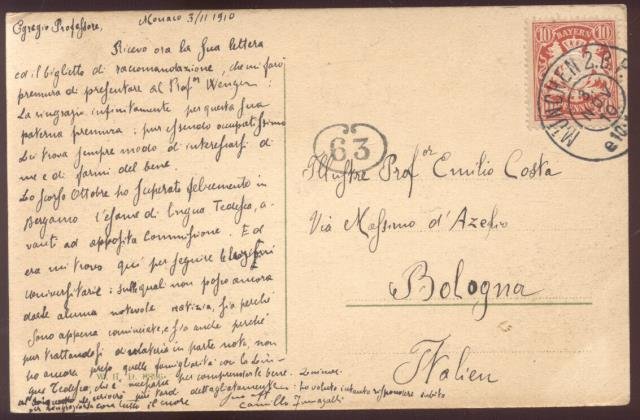 Monaco 3/11 1910
Egregio Professore,
Ricevo ora la Sua lettera
ed il biglietto di raccomandazione, che mi farò
premura di presentare al Prof.or Wenger:
La ringrazio infinitamente per questa Sua
paterna premura: pur essendo occupatissimo
Lei trova sempre modo di interessarsi di
me e di farmi del bene.
Lo scorso Ottobre ho superato felicemente in
Bergamo l'esame di lingua Tedesca, a-
vanti ad apposita Commissione. Ed
ora mi trovo qui per seguire le lezioni
universitarie: sulle quali non posso ancora
darle alcuna notevole notizia, sia perchè
sono appena cominciate, e sia anche perchè
per trattandosi di materia in parte nota, non
ho ancora preso quella famigliarità con la Lin-
gua Tedesca, che è necessaria per comprenderle bene.
più tardi dettagliatamente: ho voluto intanto rispondere subito
per ringraziarla con tutto il cuore
Camillo Fumagalli
63
Illustre Prof.or Emilio Costa
Via Massimo d'Azeglio
Bologna
Italien
10 BAYERN 10
PFENNIG
MÜNCHEN 2. B. P.